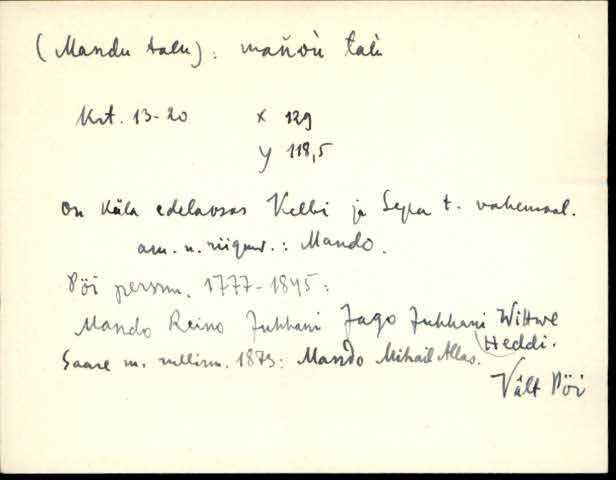 (Mandu talu): mańďù talù
Krt. 13-20 x 129
y 118,5
On küla edelaosas Kelbi ja Sepa t. vahemaal.
am. n. : Mando.
Pöi persnm. 1777-1845:
Mando Reino Juhhani Jago Juhhani Wittwe
Heddi.
Saare m. 1873: Mando Mihail Allas.
Vält Pöi